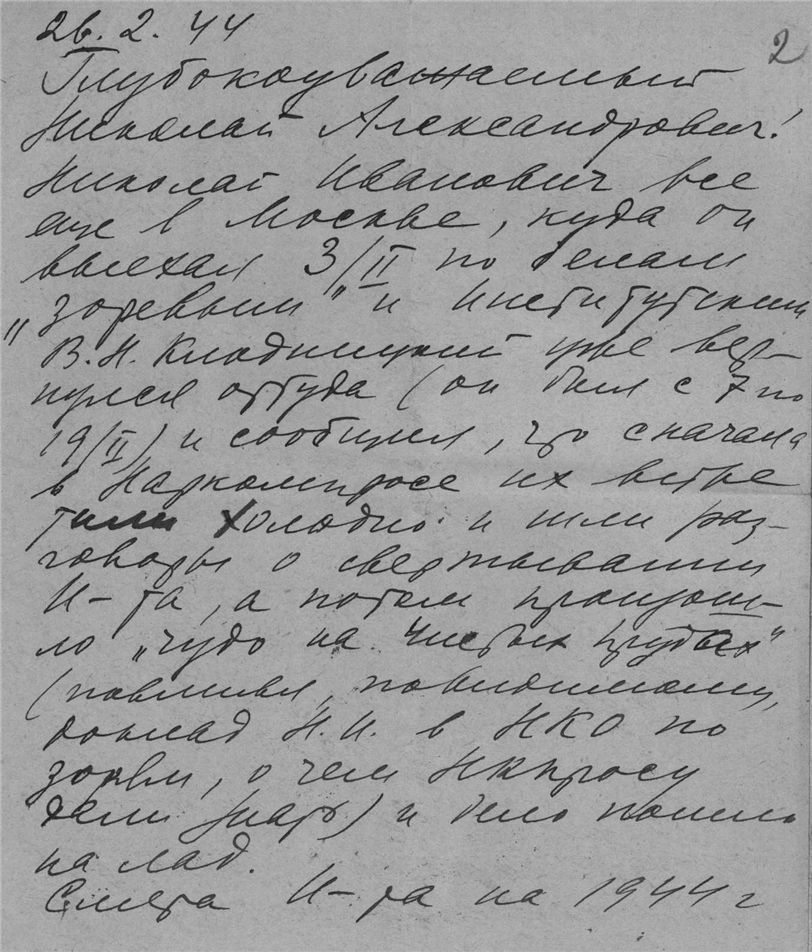 26. 2. 44
2
Глубокоуважаемый
Николай Александрович!
Николай Иванович все
еще в Москве, куда он
выехал 3/II по делам
„зоревым" и институтским
В.Н. Кладницкий уже вер-
нулся оттуда (он был с 7 по
19/II) и сообщил, что сначала
в Наркомпросе их встре
тили холодно и шли раз-
говоры о свертывании
И-та, а потом произош-
ло „чудо на Чистых прудах"
(повлиял, повидимому,
доклад Н.И. в НКО по
зорям, о чем НКпросу
дали знать) и дело пошло
на лад.
Смета И-та на 1944 г